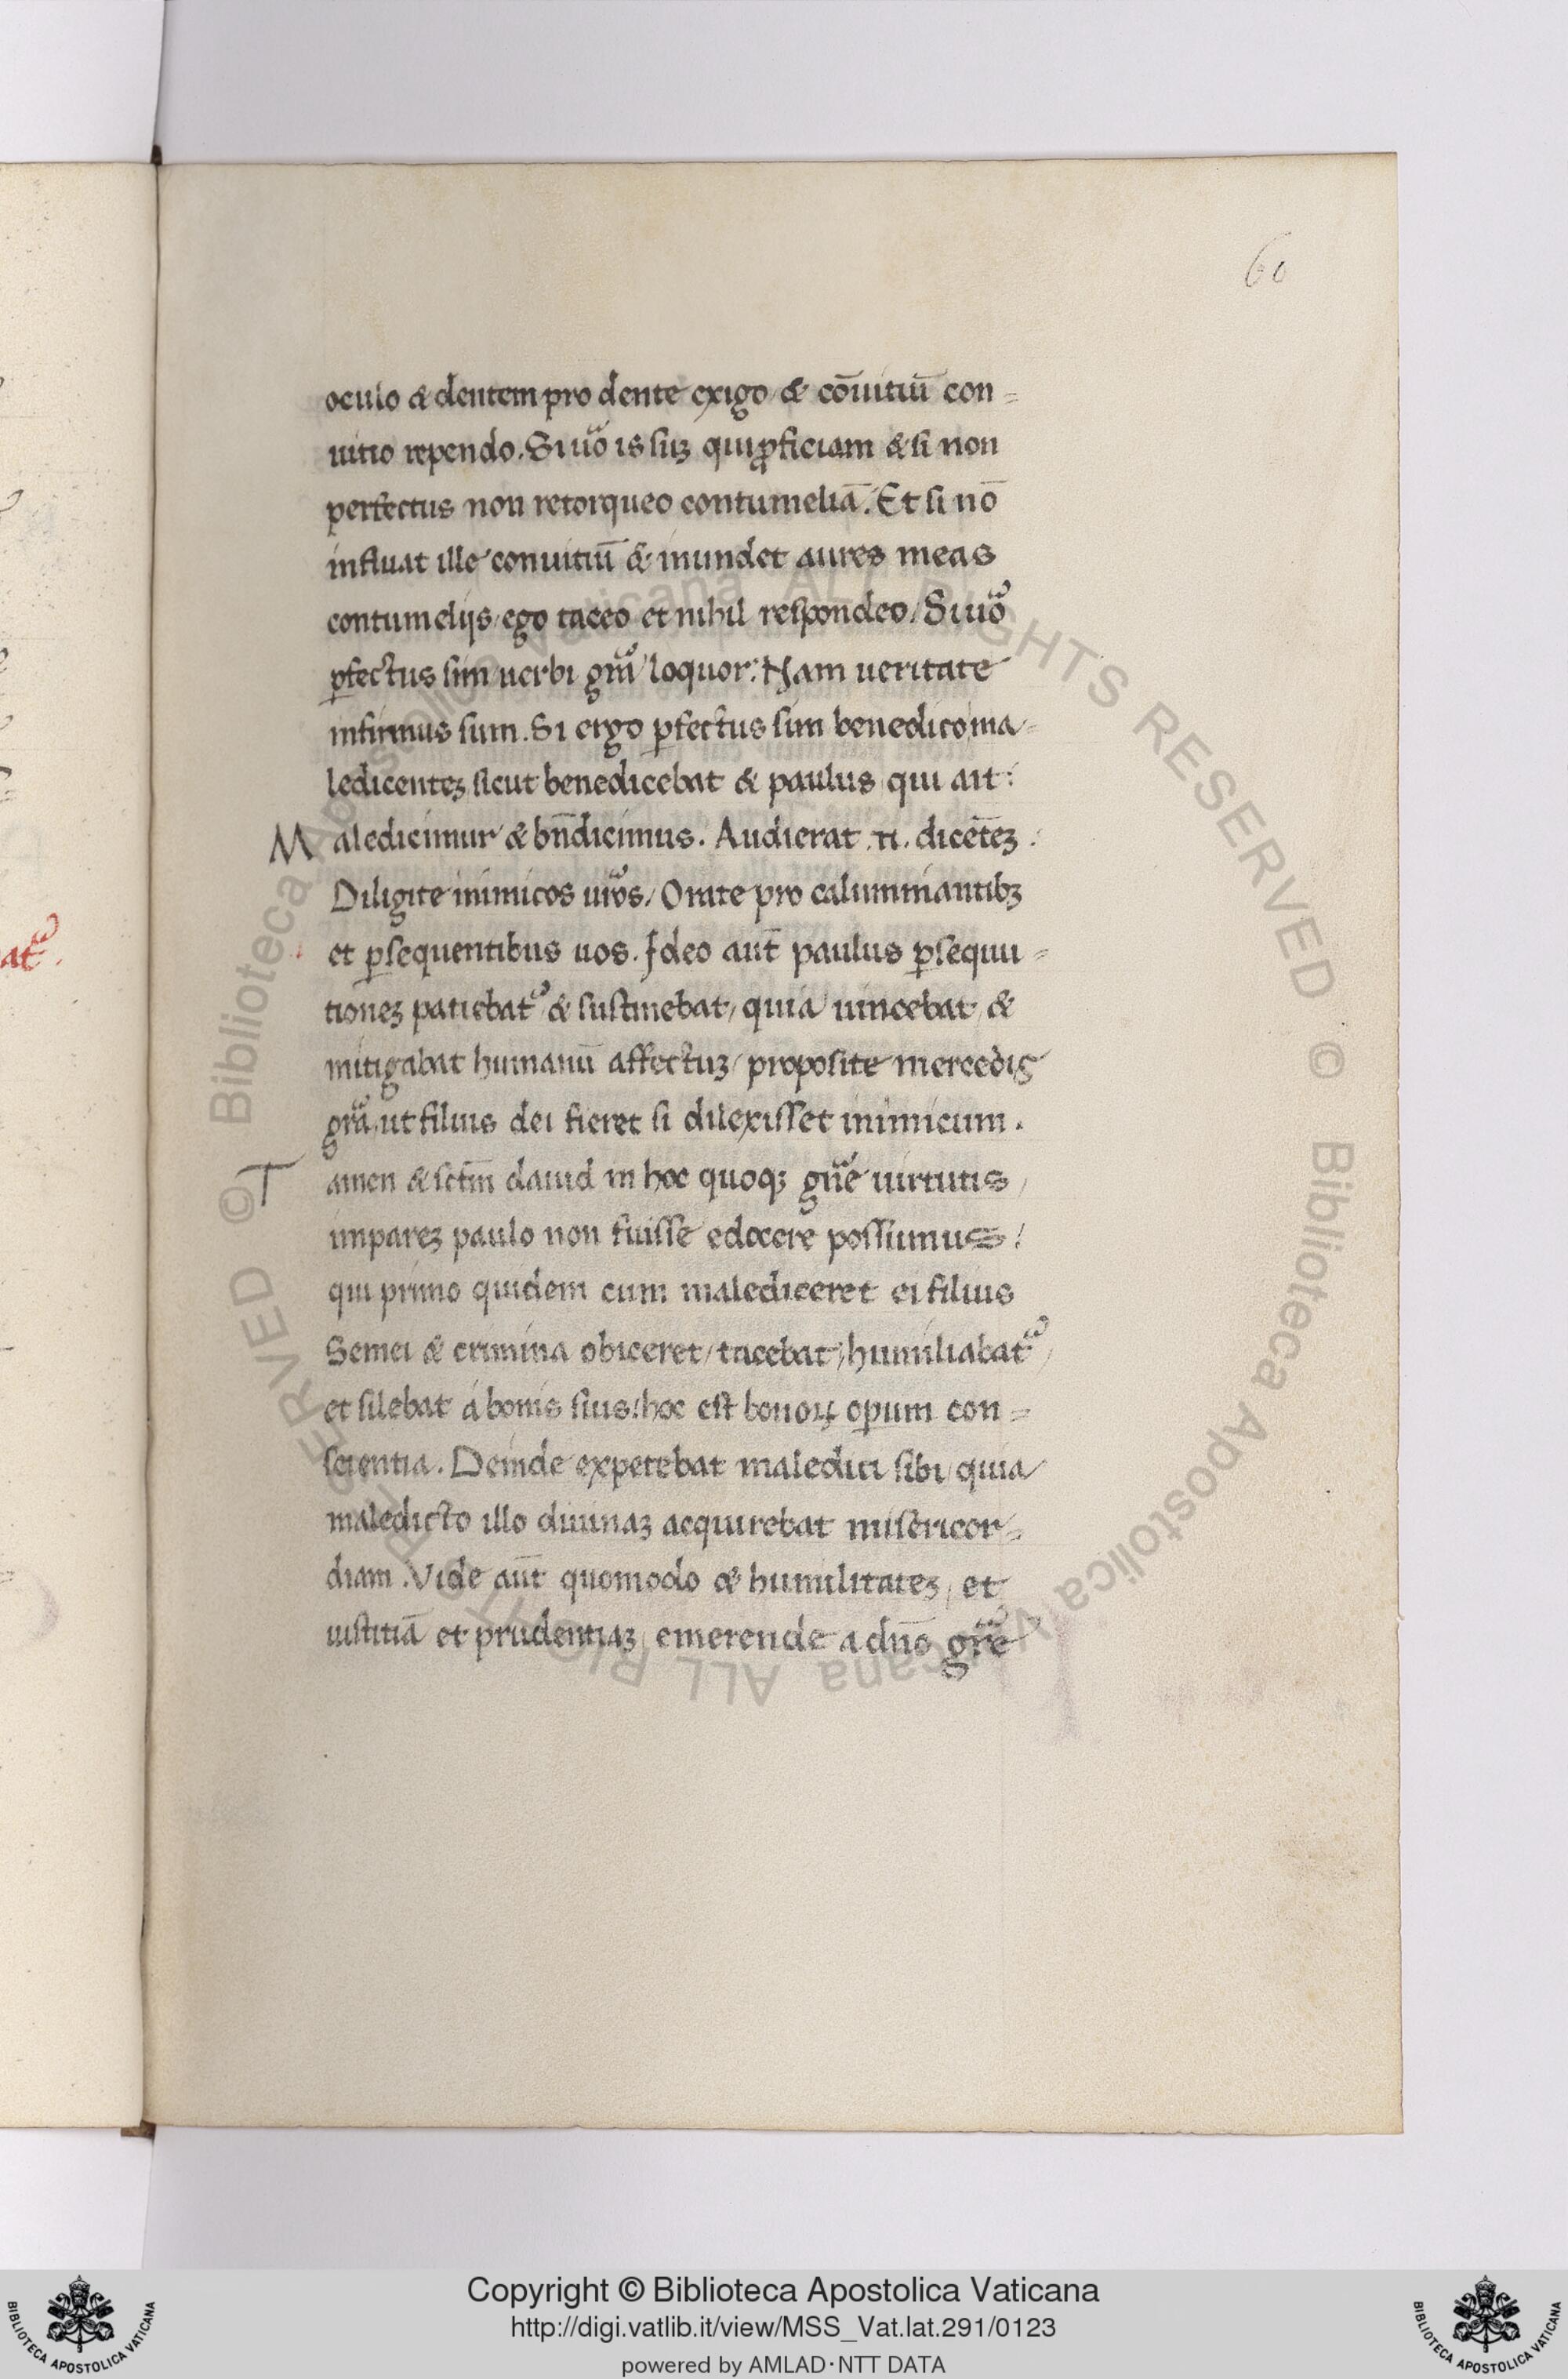 60
oculo & dentem pro dente exigo / & cōuitiū con=
uitio rependo. Si uͦo is suꝫ qui ꝓficiam & si non
perfectus non retorqueo contumeliā. Et si nō
influat ille conuitiū & inundet aures meas
contumelijs / ego taceo et nihil respondeo / Si uͦo
ꝑfectus sim uerbi grā loquor: Nam ueritate
infirmus sum. Si ergo ꝑfectus sim benedico ma-
ledicenteꝫ sicut benedicebat & paulus qui ait:
Maledicimur & bn̄dicimus. Audierat .n. dicēteꝫ.
Diligite inimicos ur̄os / Orate pro calumniantibꝫ
et ꝑsequentibus uos. Ideo aut̄ paulus ꝑsequu=
tioneꝫ patiebat᷑ & sustinebat / quia uincebat / &
mitigabat humanū affectuꝫ / proposite mercedis
grā / ut filius dei fieret si dilexisset inimicum.
Tamen & sctm̄ dauid in hoc quoqꝫ gn̄e uirtutis
impareꝫ paulo non fuisse edocere possumus!
qui primo quidem cum malediceret ei filius
Semei & crimina obiceret / tacebat / humiliabat᷑
et silebat a bonis suis / hoc est bonoꝝ oꝑum con=
scientia. Deinde expetebat maledici sibi / quia
maledicto illo diuinaꝫ acquirebat misericor=
diam. Vide aut̄ quomodo & humilitateꝫ / et
iustitiā et prudentiaꝫ / emerende a dn̄o gr̄e
at᷑.
Biblioteca Apostolica Vaticana ALL RIGHTS RESERVED © Biblioteca Apostolica Vaticana ALL RIGHTS RESERVED ©
BIBLIOTECA APOSTOLICA VATICANA
Copyright © Biblioteca Apostolica Vaticana
http://digi.vatlib.it/view/MSS_Vat.lat.291/0123
powered by AMLAD·NTT DATA
BIBLIOTECA APOSTOLICA VATICANA